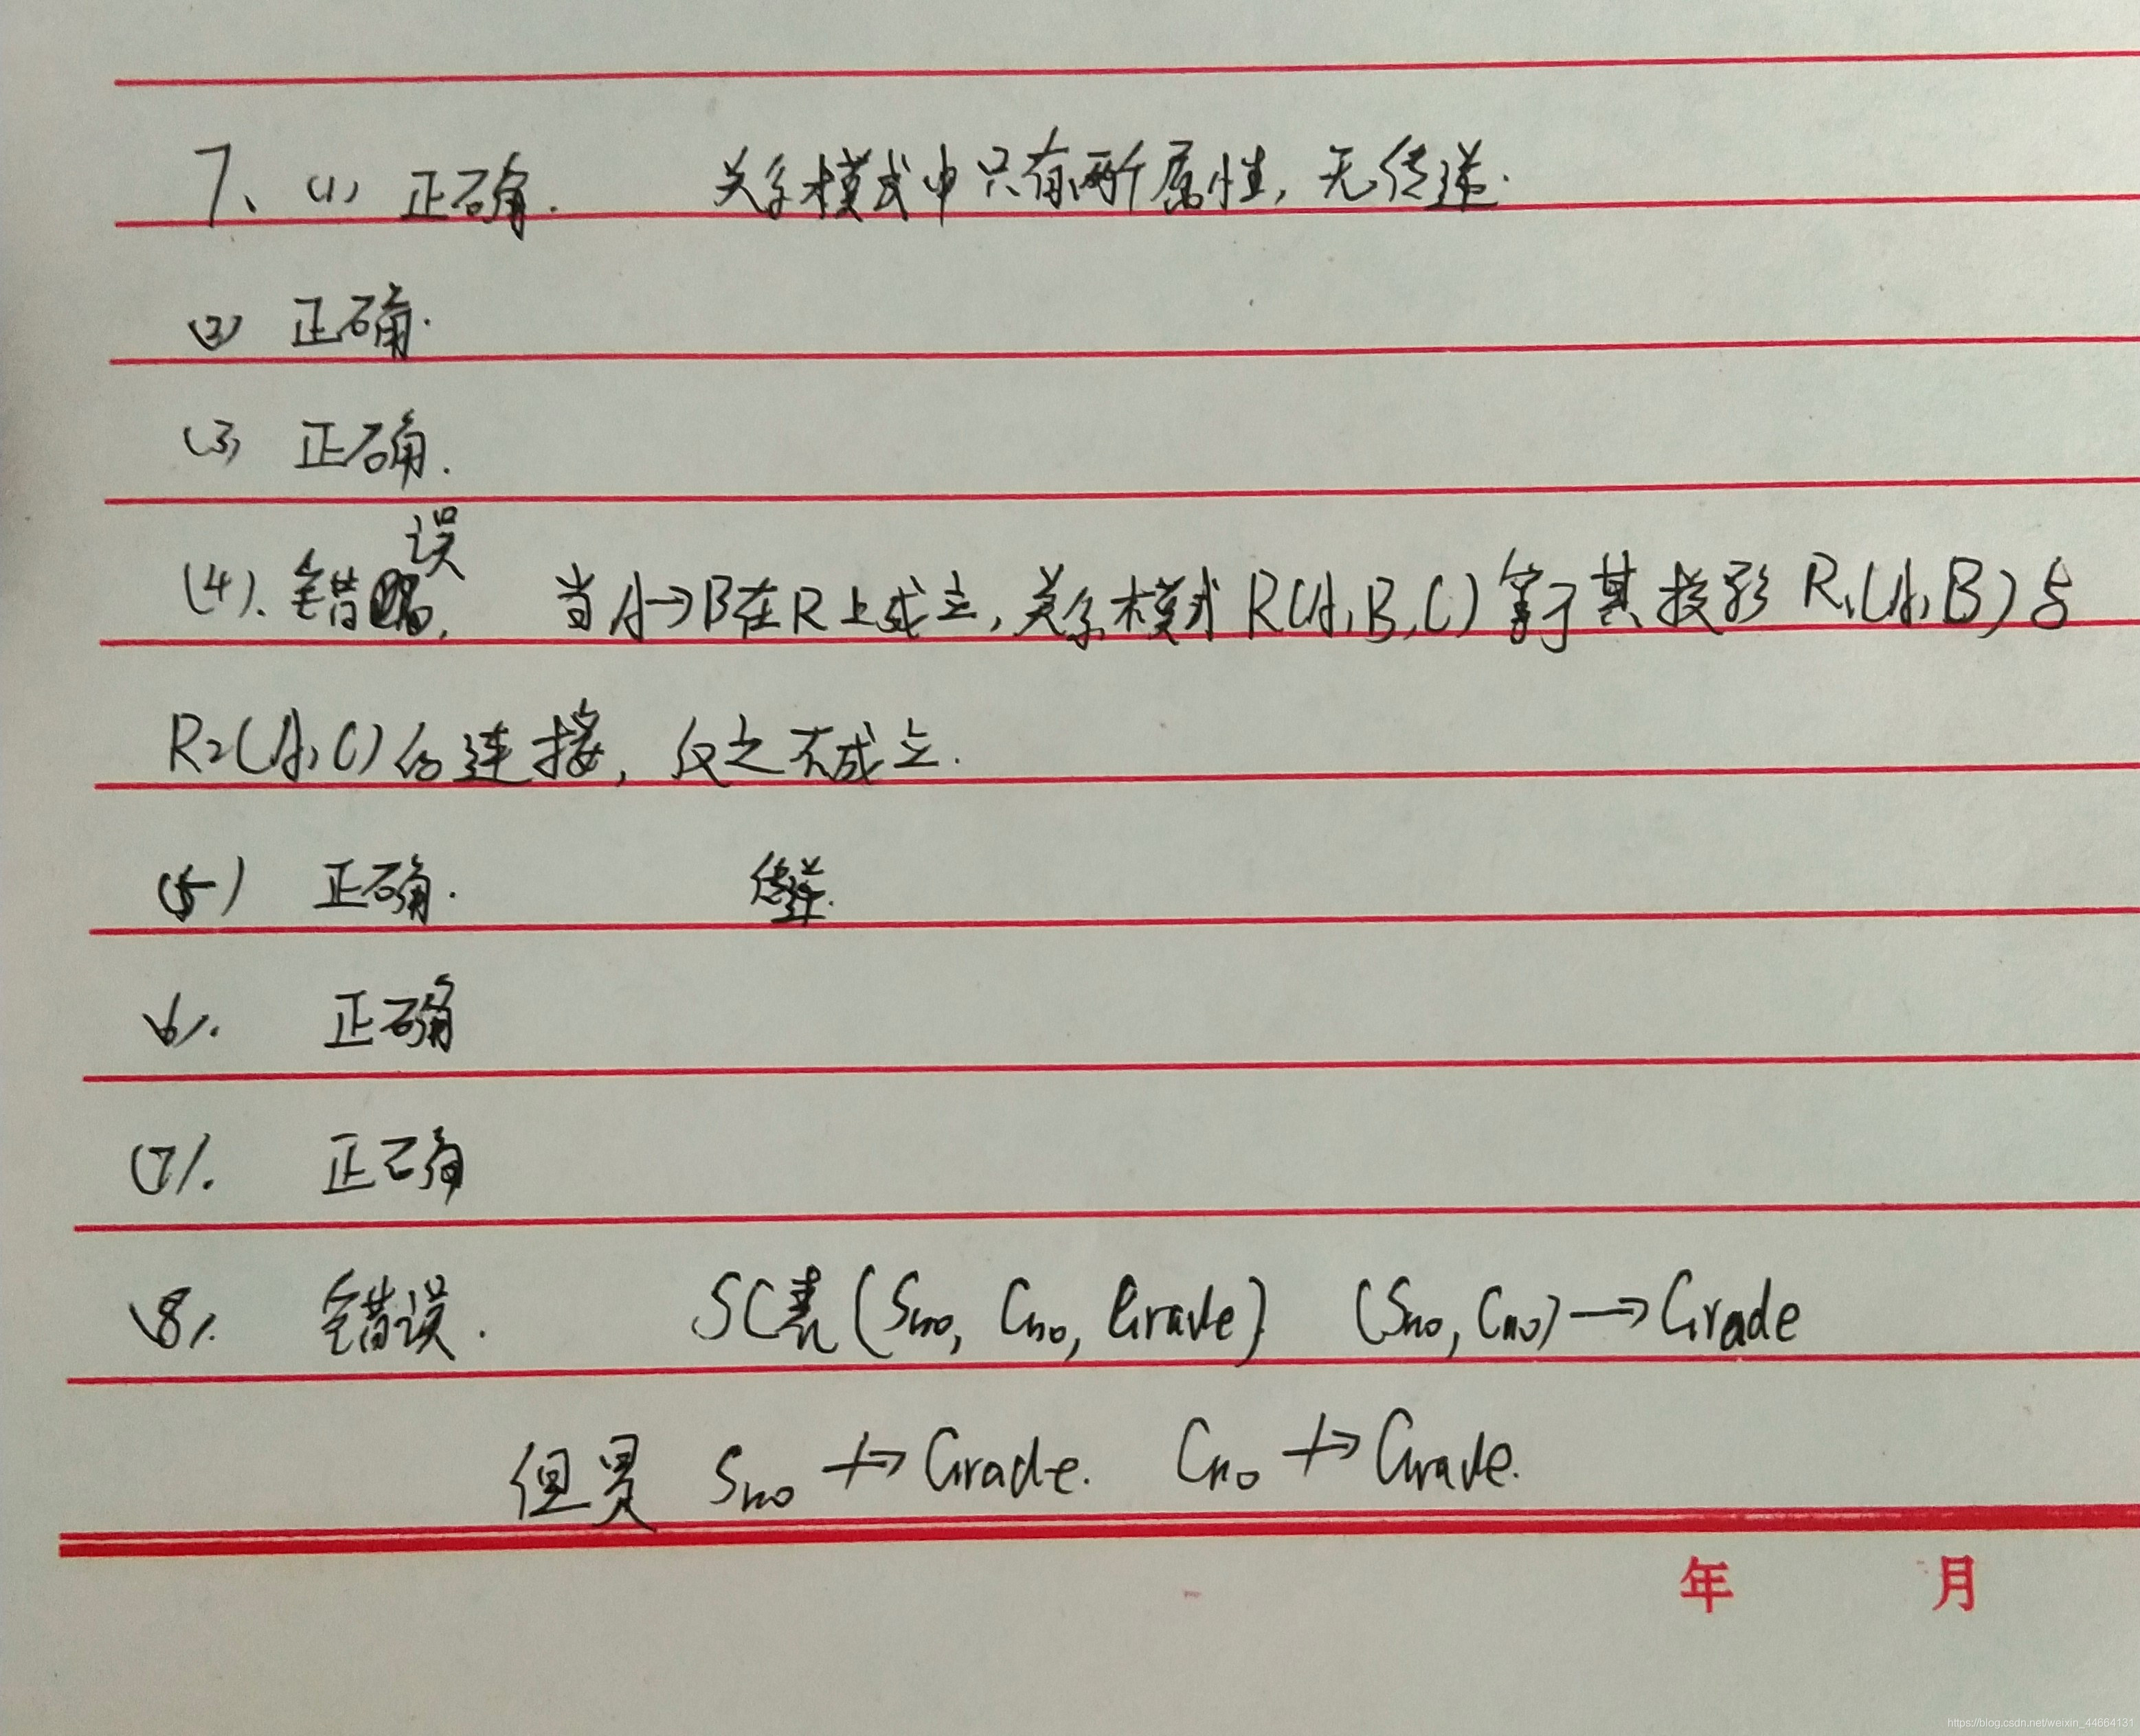 7、(1) 正确. 关系模式中只有两个属性, 无传递.
(2) 正确.
(3) 正确.
(4). 错误, 当A→B在R上成立, 关系模式R(A,B,C)等于其投影R1(A,B)与
R2(A,C)的连接, 反之不成立.
(5) 正确. 传递.
(6). 正确
(7). 正确
(8). 错误. SC表(Sno, Cno, Grade) (Sno, Cno)→Grade
但是 Sno ↛ Grade. Cno ↛ Grade.
年 月
https://blog.csdn.net/weixin_44664131